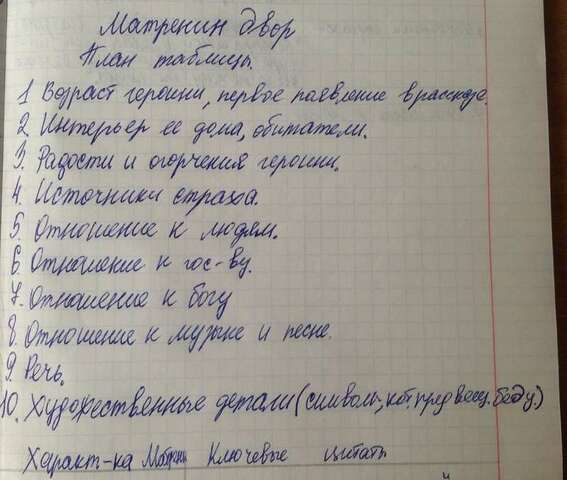 Матренин двор
План таблицы.
1 Возраст героини, первое появление в рассказе.
2 Интерьер ее дома, обитатели.
3. Радости и огорчения героини.
4. Источники страха.
5. Отношение к людям.
6. Отношение к гос-ву.
7. Отношение к богу
8. Отношение к музыке и песне.
9. Речь.
10. Художественные детали (символы, кот. предвещ. беду)
Характ-ка Матрены Ключевые цитаты